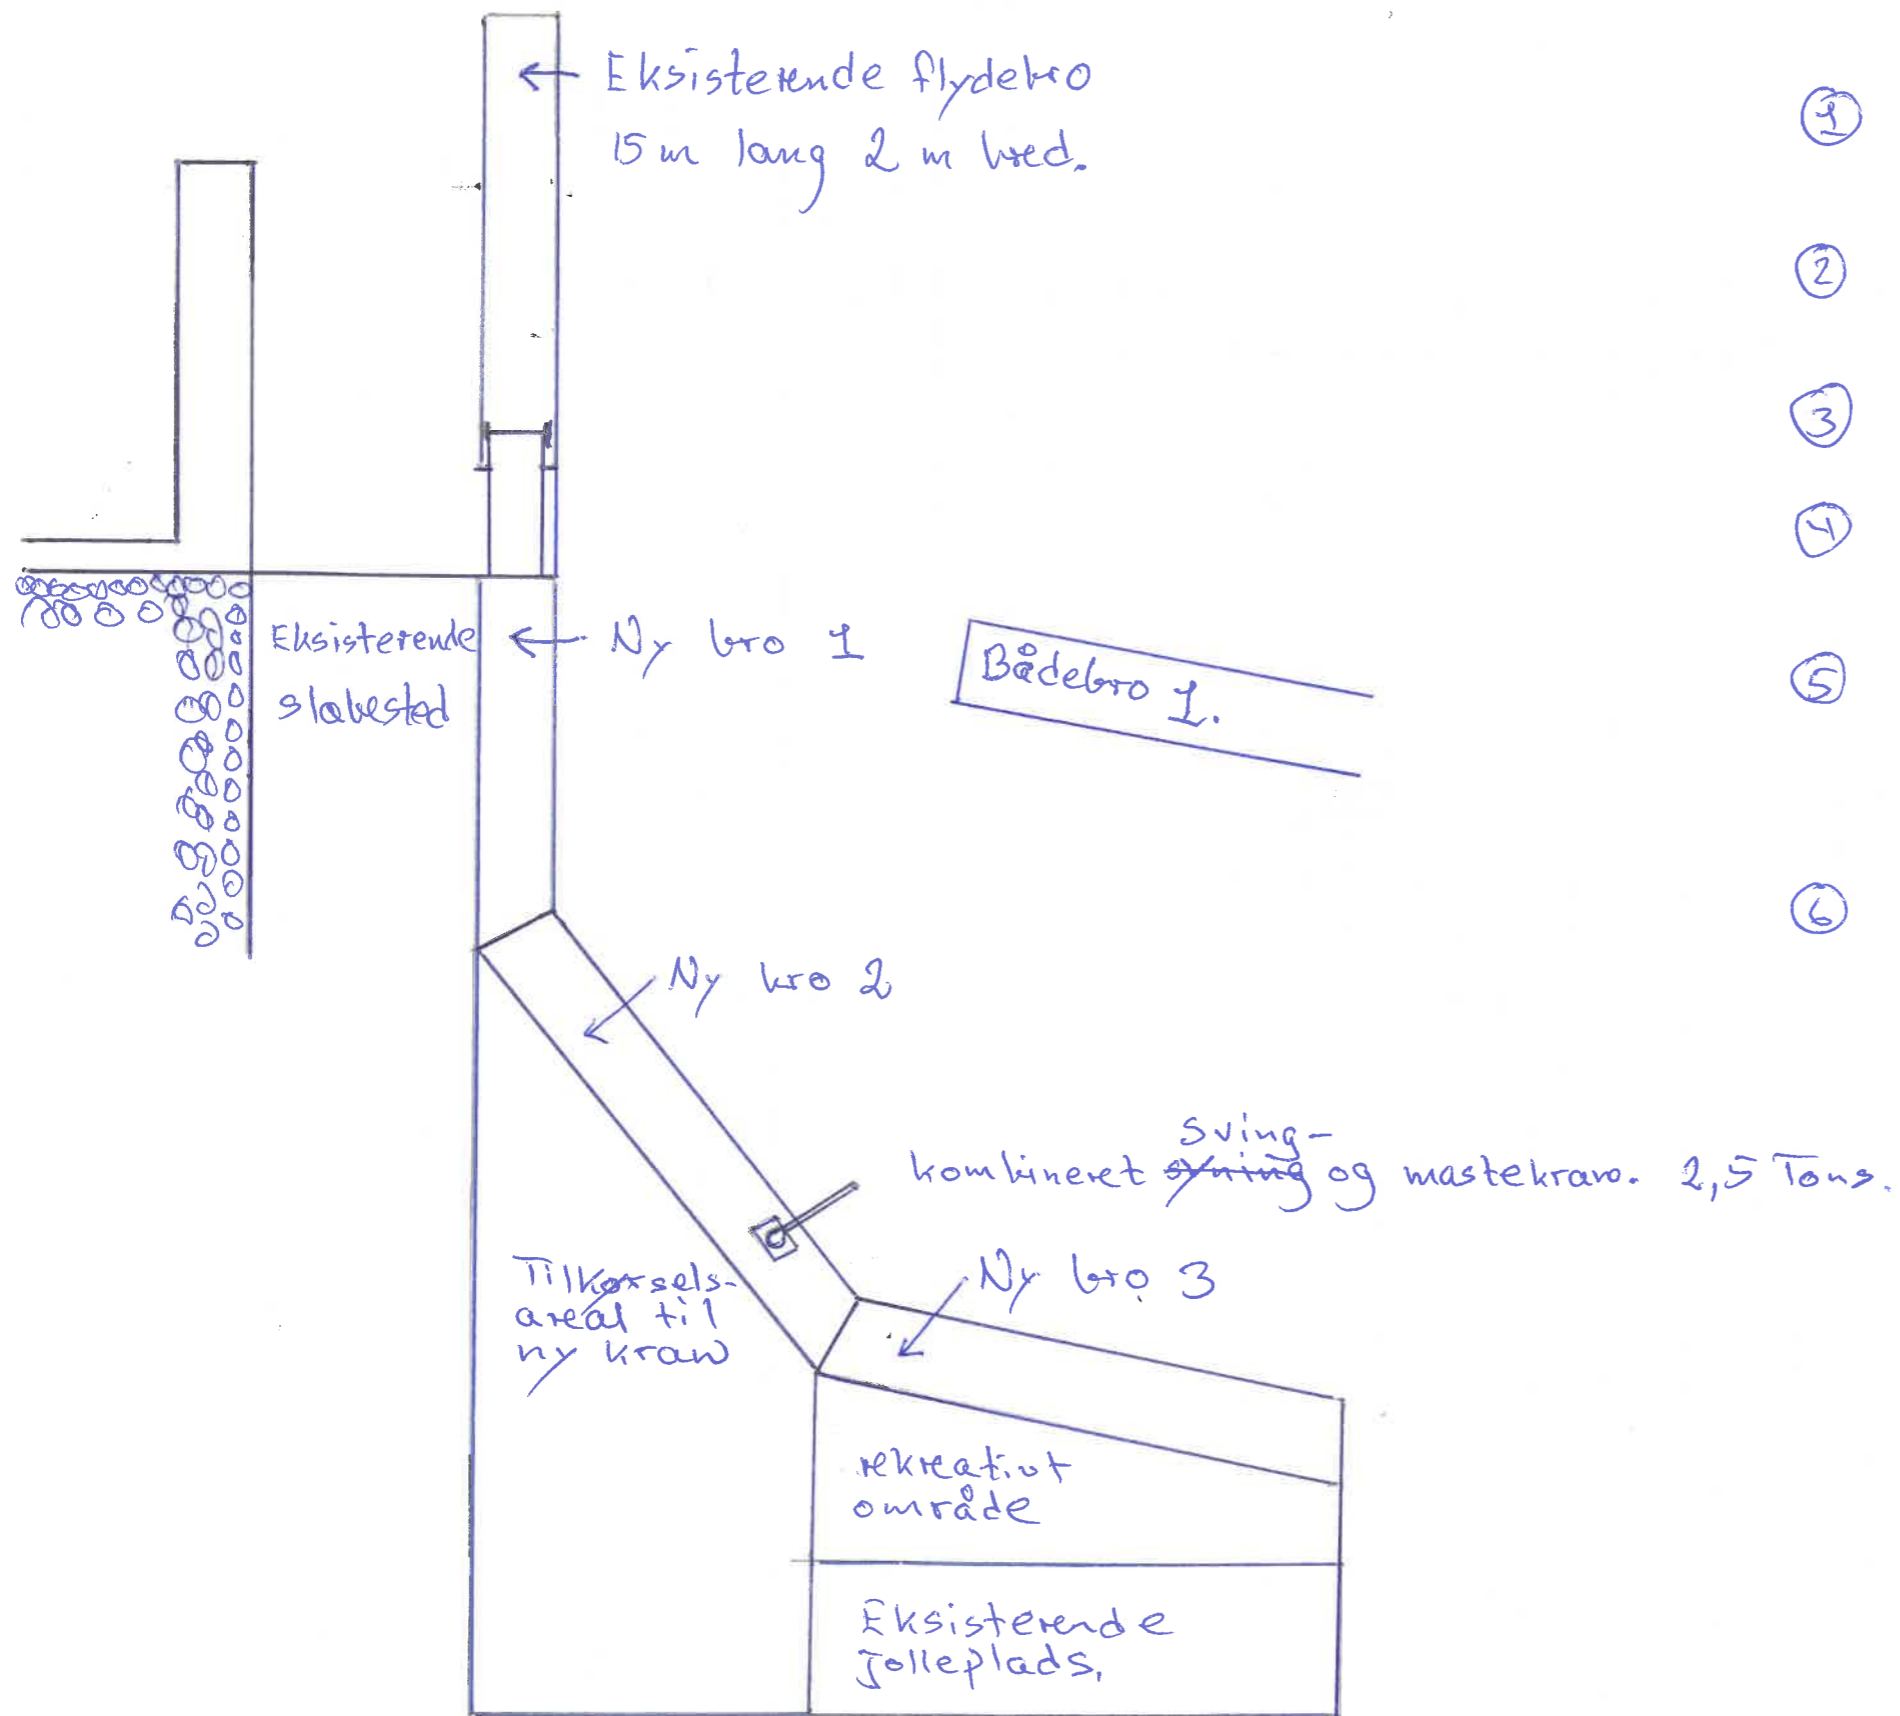 Eksisterende flydebro
15 m lang 2 m bred.
1
2
3
4
Eksisterende
slæbested
Ny bro 1
Bådebro 1.
5
6
Ny bro 2
Sving-
kombineret syning og mastekran. 2,5 Tons.
Ny bro 3
Tilkørsels-
areal til
ny kran
rekreativt
område
Eksisterende
jolleplads,